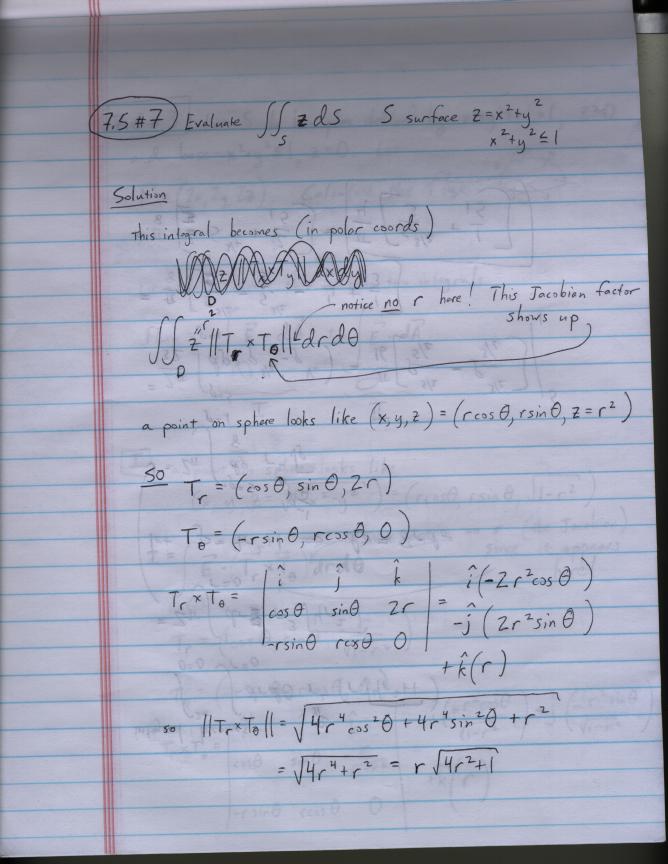 7.5 #7 Evaluate ∬_S z dS S surface z = x²+y²
x²+y² ≤ 1
Solution
This integral becomes (in polar coords)
notice no r here! This Jacobian factor
shows up
∬_D z "r² ||T_r × T_θ|| dr dθ
a point on sphere looks like (x, y, z) = (r cos θ, r sin θ, z = r²)
So T_r = (cos θ, sin θ, 2r)
T_θ = (-r sin θ, r cos θ, 0)
T_r × T_θ = | î ĵ k̂ | = î(-2r² cos θ)
| cos θ sin θ 2r | -ĵ(2r² sin θ)
| -r sin θ r cos θ 0 | +k̂(r)
so ||T_r × T_θ|| = √(4r⁴ cos²θ + 4r⁴ sin²θ + r²)
= √(4r⁴ + r²) = r √(4r²+1)